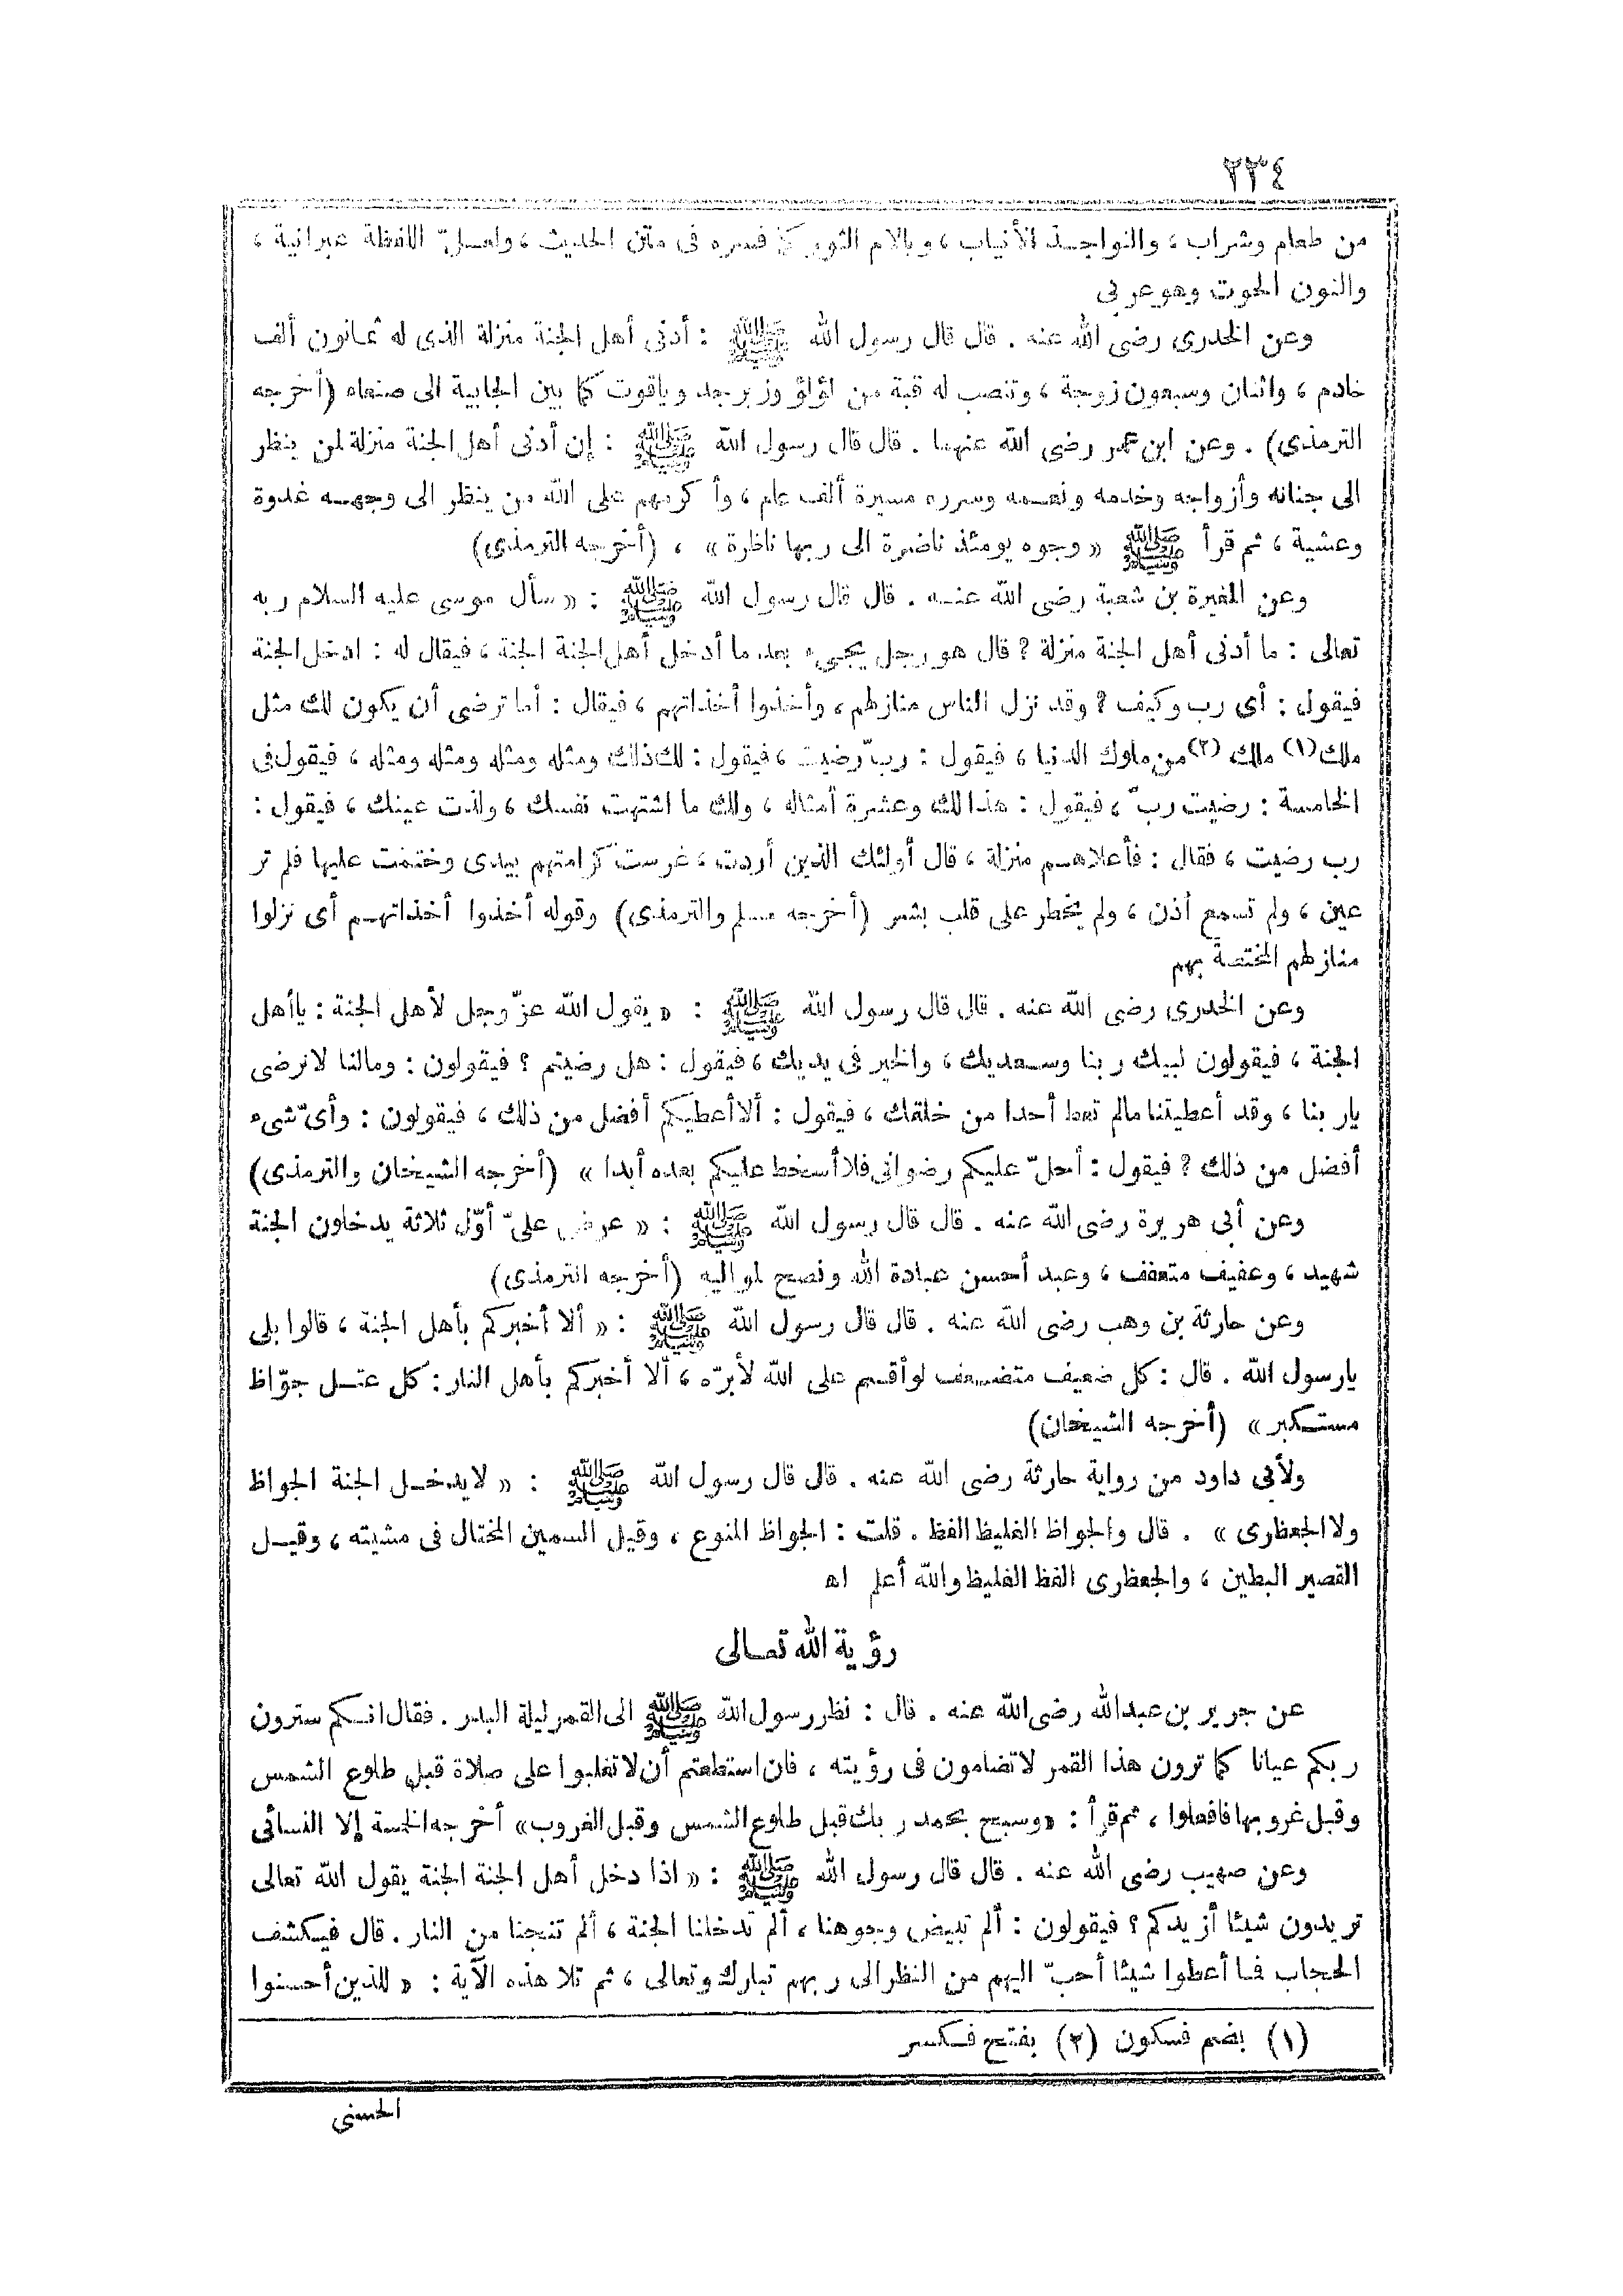 ٢٣٤
من طعام وشراب ، والنواجذ الأنياب ، وبالام الثور كذا فسره فى متن الحديث ، ولعـلّ اللفظة عبرانية ،
والنون الحوت وهو عربى
وعن الخدرى رضى الله عنه . قال قال رسول الله ﷺ : أدنى أهل الجنة منزلة الذى له ثمانون ألف
خادم ، واثنان وسبعون زوجة ، وتنصب له قبة من لؤلؤ وزبرجد وياقوت كما بين الجابية الى صنعاء (أخرجه
الترمذى) . وعن ابن عمر رضى الله عنهما . قال قال رسول الله ﷺ : إن أدنى أهل الجنة منزلة لمن ينظر
الى جنانه وأزواجه وخدمه ونعـمه وسرره مسيرة ألف عام ، وأكرمهم على الله من ينظر الى وجهـه غدوة
وعشية ، ثم قرأ ﷺ « وجوه يومئذ ناضرة الى ربها ناظرة » ، (أخرجه الترمذى)
وعن المغيرة بن شعبة رضى الله عنـه . قال قال رسول الله ﷺ : « سأل موسى عليه السلام ربه
تعالى : ما أدنى أهل الجنة منزلة ؟ قال هو رجل يجىء بعد ما أدخل أهل الجنة الجنة ، فيقال له : ادخل الجنة
فيقول : أى رب وكيف ؟ وقد نزل الناس منازلهم ، وأخذوا أخذاتهم ، فيقال : أما ترضى أن يكون لك مثل
ملك (١) ملك (٢) من ملوك الدنيا ، فيقول : ربّ رضيت ، فيقول : لك ذلك ومثله ومثله ومثله ومثله ، فيقول فى
الخامسة : رضيت ربّ ، فيقول : هذا لك وعشرة أمثاله ، ولك ما اشتهت نفسك ، ولذت عينك ، فيقول :
رب رضيت ، فقال : فأعلاهـم منزلة ، قال أولئك الذين أردت ، غرست كرامتهم بيدى وختمت عليها فلم تر
عين ، ولم تسمع أذن ، ولم يخطر على قلب بشر (أخرجه مسلم والترمذى) وقوله أخذوا أخذاتهـم أى نزلوا
منازلهم المختصة بهم
وعن الخدرى رضى الله عنه . قال قال رسول الله ﷺ : « يقول الله عزّ وجل لأهل الجنة : يا أهل
الجنة ، فيقولون لبيك ربنا وسـعديك ، والخير فى يديك ، فيقول : هل رضيتم ؟ فيقولون : ومالنا لا نرضى
يار بنا ، وقد أعطيتنا مالم تعط أحدا من خلقك ، فيقول : ألا أعطيكم أفضل من ذلك ، فيقولون : وأىّ شىء
أفضل من ذلك ؟ فيقول : أحلّ عليكم رضوانى فلا أسخط عليكم بعده أبدا » (أخرجه الشيخان والترمذى)
وعن أبى هريرة رضى الله عنه . قال قال رسول الله ﷺ : « عرض علىّ أوّل ثلاثة يدخلون الجنة
شهيد ، وعفيف متعفف ، وعبد أحسن عبادة الله ونصح لمواليه (أخرجه الترمذى)
وعن حارثة بن وهب رضى الله عنه . قال قال رسول الله ﷺ : « ألا أخبركم بأهل الجنة ، قالوا بلى
يارسول الله . قال : كل ضعيف متضـعف لو أقسم على الله لأبرّه ، ألا أخبركم بأهل النار : كل عتـل جوّاظ
مستكبر » (أخرجه الشيخان)
ولأبى داود من رواية حارثة رضى الله عنه . قال قال رسول الله ﷺ : « لا يدخـل الجنة الجواظ
ولا الجعظرى » . قال والجواظ الغليظ الفظ . قلت : الجواظ المنوع ، وقيل السمين المختال فى مشيته ، وقيـل
القصير البطين ، والجعظرى الفظ الغليظ والله أعلم اه
رؤية الله تعـالى
عن جرير بن عبدالله رضى الله عنه . قال : نظر رسول الله ﷺ الى القمر ليلة البدر . فقال انـكم سترون
ربكم عيانا كما ترون هذا القمر لا تضامون فى رؤيته ، فان استطعتم أن لا تغلبوا على صلاة قبل طلوع الشمس
وقبل غروبها فافعلوا ، ثم قرأ : «وسبح بحمد ربك قبل طلوع الشمس وقبل الغروب» أخرجه الخمسة إلا النسائى
وعن صهيب رضى الله عنه . قال قال رسول الله ﷺ : « اذا دخل أهل الجنة الجنة يقول الله تعالى
تريدون شيئا أزيدكم ؟ فيقولون : ألم تبيض وجوهنا ، ألم تدخلنا الجنة ، ألم تنجنا من النار . قال فيكشف
الحجاب فما أعطوا شيئا أحبّ اليهم من النظر الى ربهم تبارك وتعالى ، ثم تلا هذه الآية : « للذين أحسنوا
(١) بضم فسكون (٢) بفتح فـكسر
الحسنى